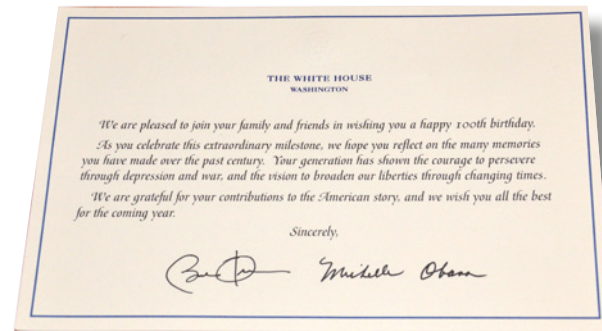 THE WHITE HOUSE
WASHINGTON
We are pleased to join your family and friends in wishing you a happy 100th birthday.
As you celebrate this extraordinary milestone, we hope you reflect on the many memories
you have made over the past century. Your generation has shown the courage to persevere
through depression and war, and the vision to broaden our liberties through changing times.
We are grateful for your contributions to the American story, and we wish you all the best
for the coming year.
Sincerely,
Michelle Obama